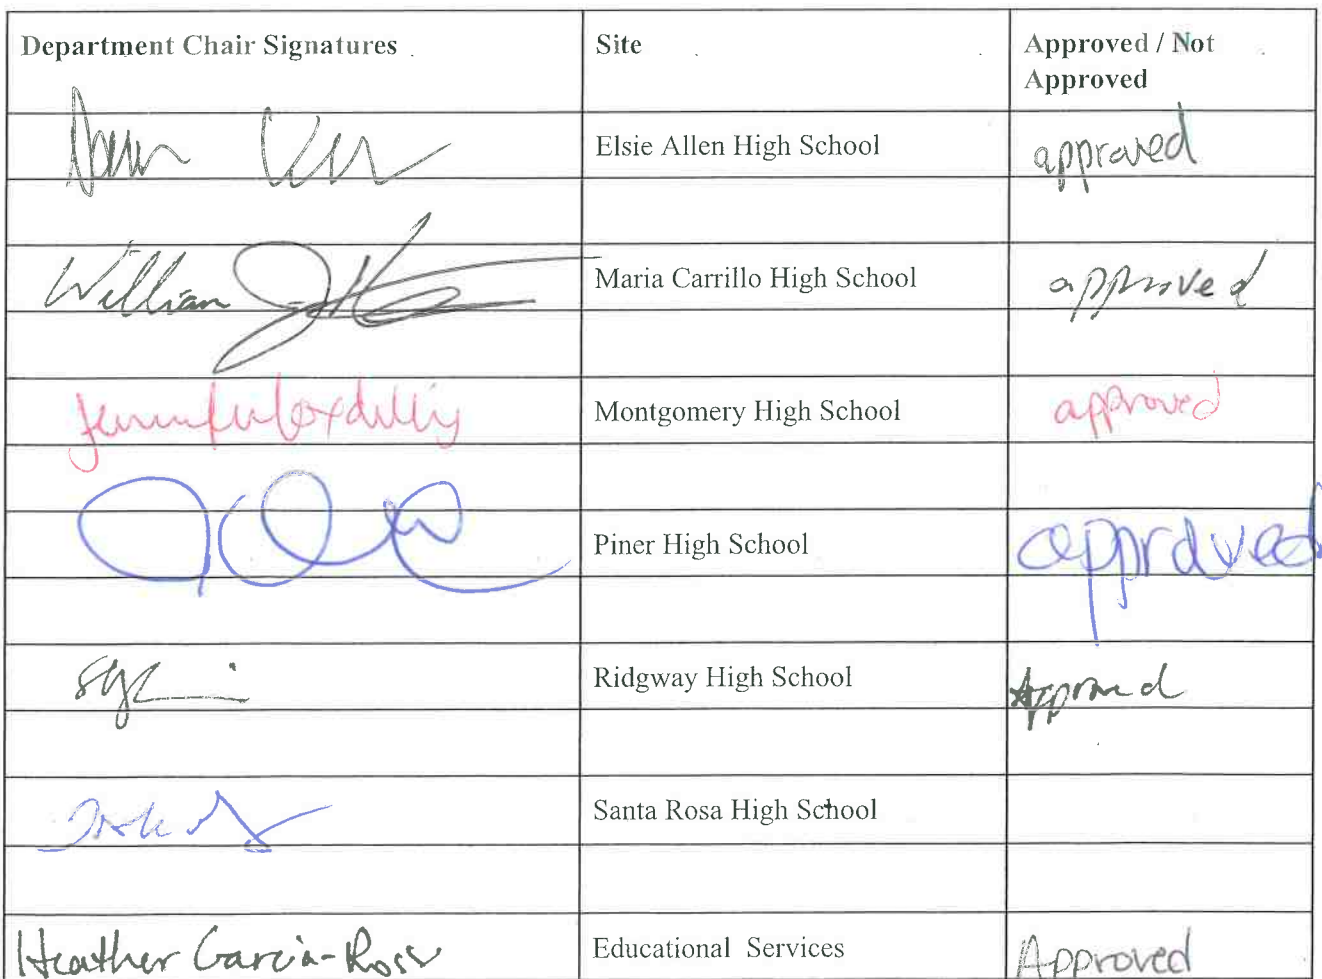 Department Chair Signatures Site Approved / Not
Approved
Elsie Allen High School approved
William Maria Carrillo High School approved
Montgomery High School approved
Piner High School approved
Ridgway High School Approved
Santa Rosa High School
Heather Garcia-Ross Educational Services Approved